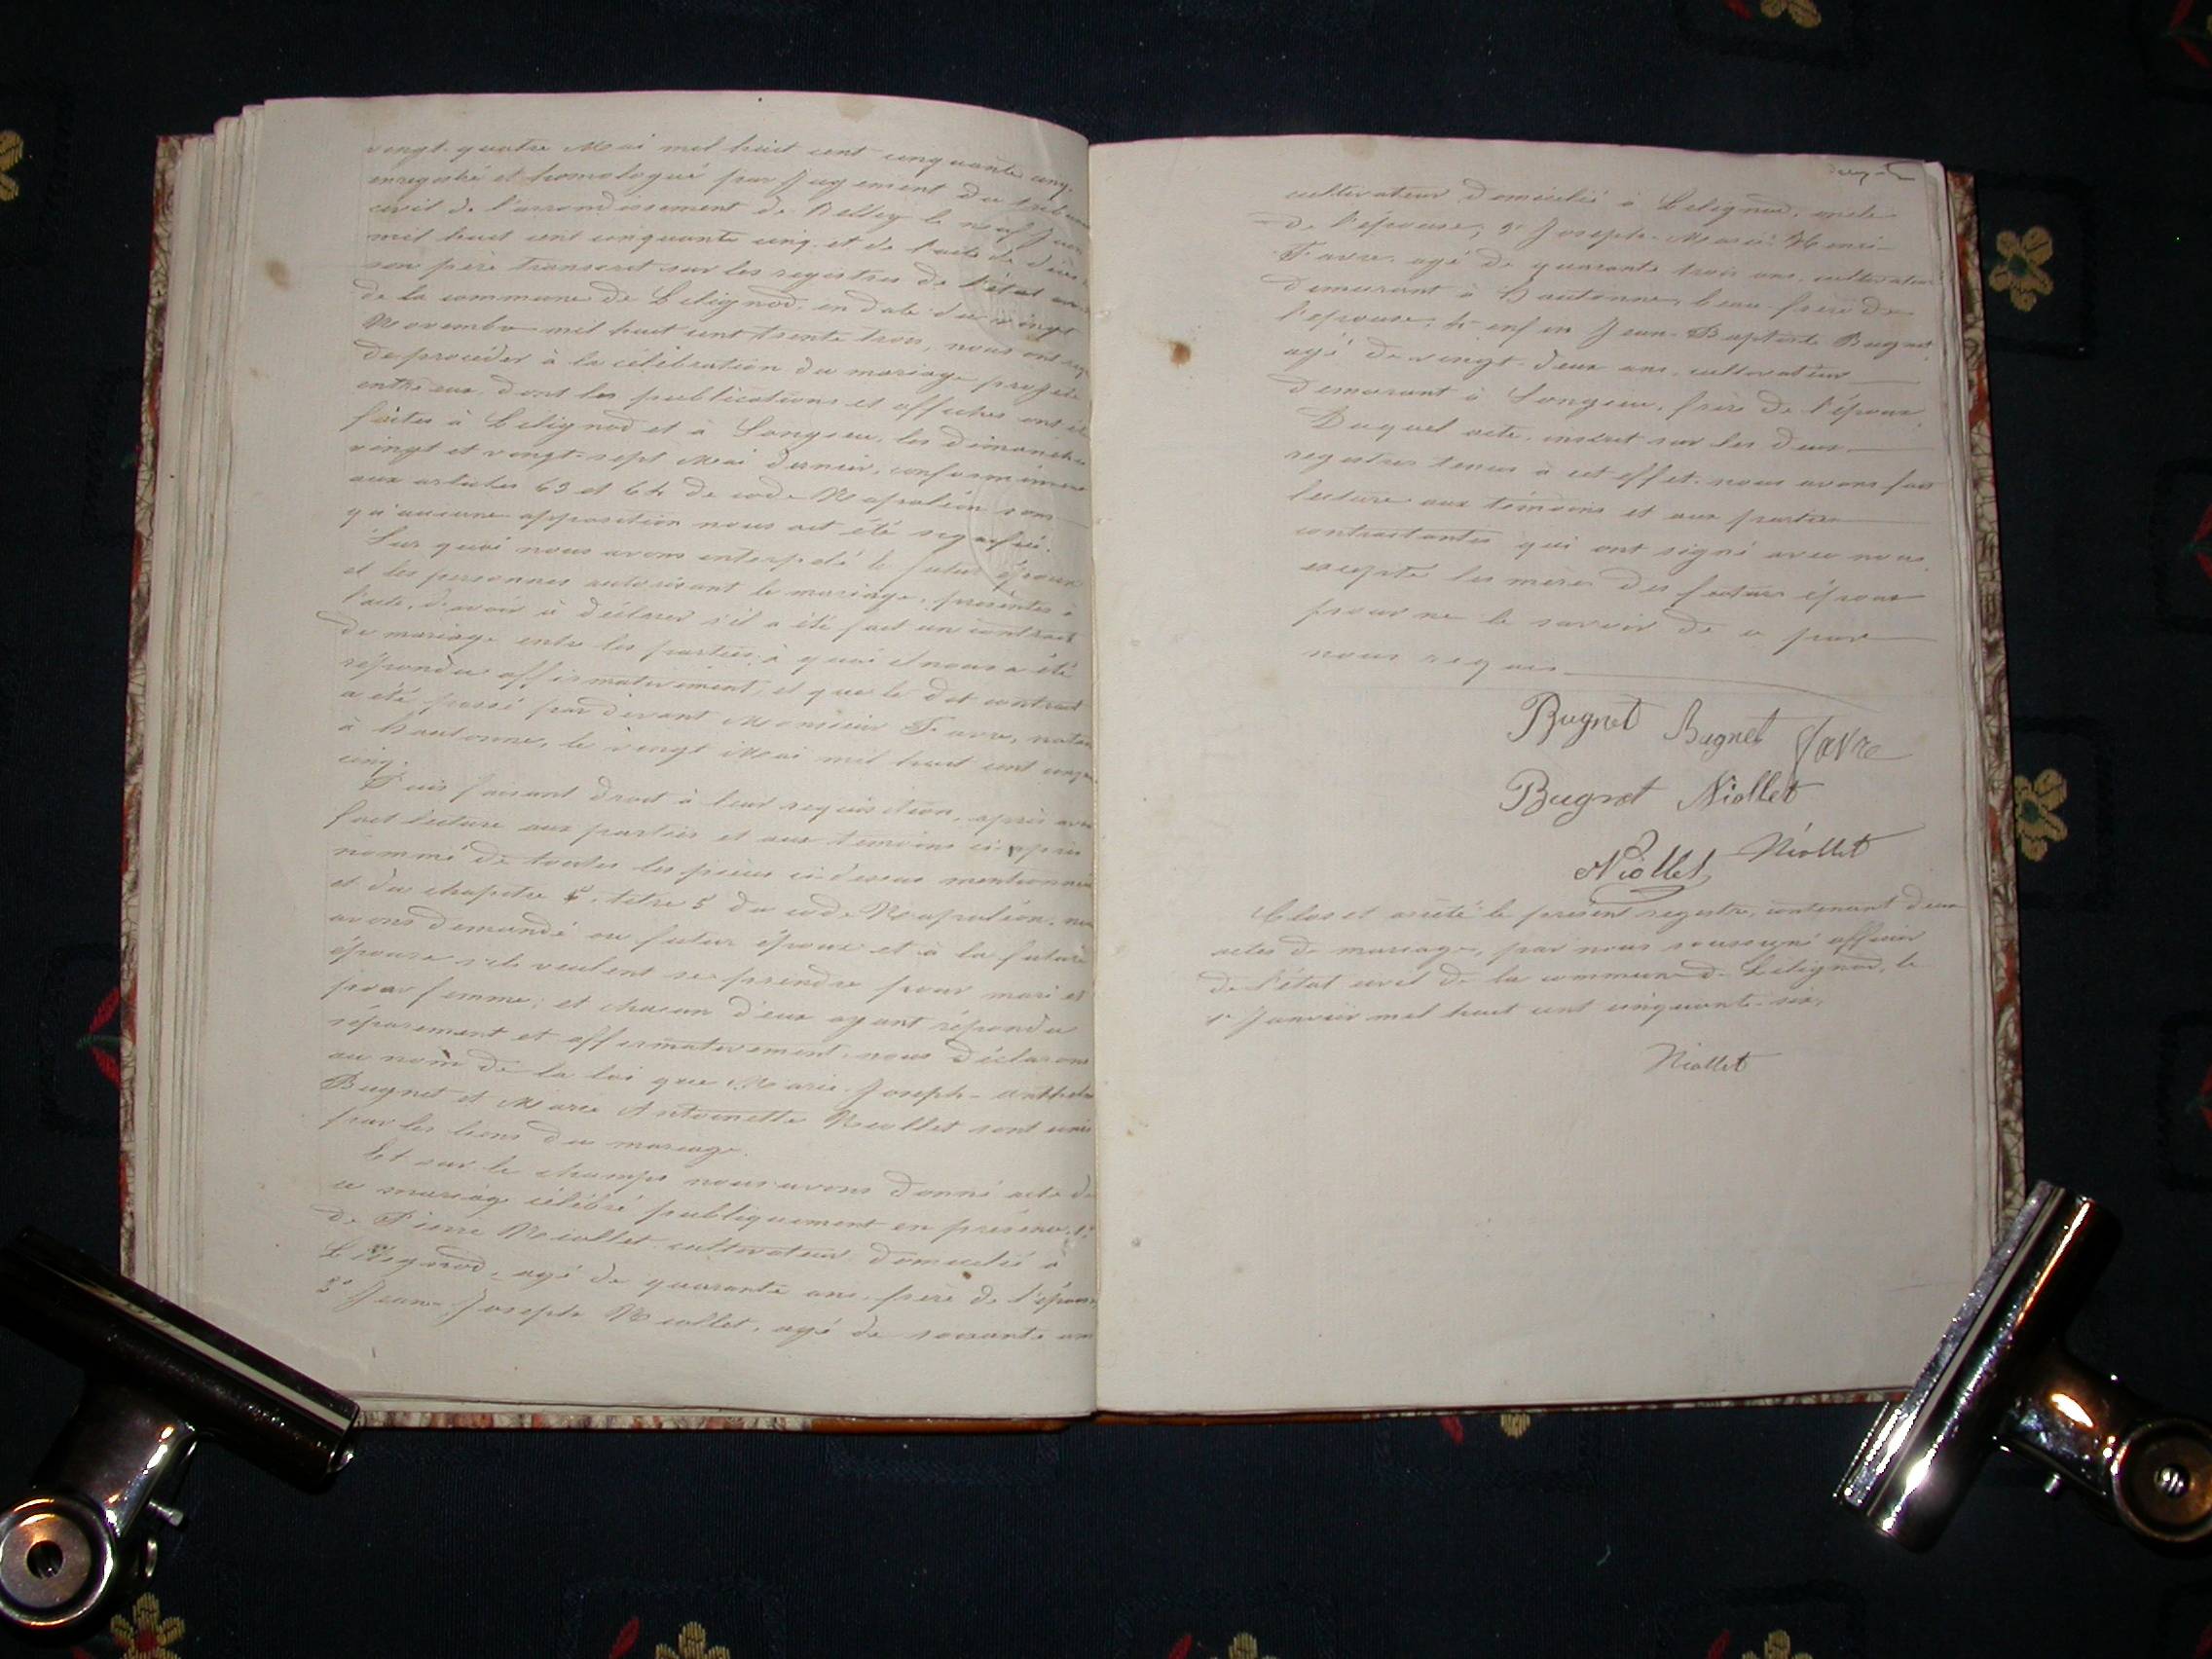 vingt-quatre Mai mil huit cent cinquante cinq.
enregistré et homologué par Jugement du tribunal
civil de l'arrondissement de Belley le neuf Juin
mil huit cent cinquante cinq, et de l'acte de décès de
son père transcrit sur les registres de l'état civil
de la commune de Lilignod, en date du vingt
Novembre mil huit cent trente trois, nous ont requis
de procéder à la célébration du mariage projeté
entre eux, dont les publications et affiches ont été
faites à Lilignod et à Songieu, les dimanches
vingt et vingt-sept Mai dernier, conformément
aux articles 63 et 64 de code Napoléon sans
qu'aucune opposition nous ait été signifié.
Sur quoi nous avons interpelé le futur époux
et les personnes autorisant le mariage, présentes à
l'acte, d'avoir à déclarer s'il a été fait un contract
de mariage entre les parties; à quoi il nous a été
répondu affirmativement, et que le dit contract
a été passé pardevant Monsieur Favre, notaire
à hautonne, le vingt Mai mil huit cent cinquante
cinq.
Puis faisant droit à leur requisition, après avoir
fait lecture aux parties et aux temoins ci-après
nommé de toutes les pièces ci dessus mentionnées
et du chapitre 6, titre 5 du code Napoléon, nous
avons demandé au futur époux et à la future
épouse s'ils veulent se prendre pour mari et
pour femme; et chacun d'eux ayant répondu
séparement et affirmativement, nous déclarons
au nom de la loi que Marie-Joseph-anthelme
Bugnet et Marie Antoinette Niollet sont unis
par les liens du mariage.
Et sur le champs nous avons donné acte de
ce mariage célébré publiquement en présence, 1°
de Pierre Niollet cultivateur domicilié à
Lilignod, agé de quarante ans, frère de l'épouse
2° Jean-Joseph Niollet, agé de soixante ans
cultivateur domicilié à Lilignod, oncle
de l'épouse, 3° Joseph-Marie-Henri
Favre, agé de quarante trois ans, cultivateur
demeurant à hautonne, beau frère de
l'epouse, 4° enfin Jean-Baptiste Bugnet
agé de vingt-deux ans, cultivateur
demeurant à Songieu, frère de l'époux.
Duquel acte, inscrit sur les deux
registres tenus à cet effet, nous avons fait
lecture aux témoins et aux parties
contractantes qui ont signé avec nous
excepté les mères des futurs époux
pour ne le savoir de ce par
nous requis
Bugnet Bugnet Favre
Bugnet Niollet
Niollet Niollet
Clos et arrêté le présent registre, contenant deux
actes de mariage, par nous soussigné officier
de l'état civil de la commune de Lilignod, le
1er Janvier mil huit cent cinquante-six.
Niollet